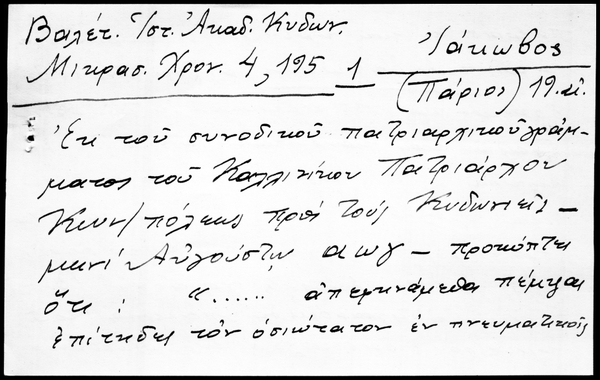 Βαλέτ. Ἱστ. Ἀκαδ. Κυδων.
Μικρασ. Χρον. 4, 195
1
Ἰάκωβος
(Πάριος) 19.αἰ.
Ἐκ τοῦ συνοδικοῦ πατριαρχικοῦ γράμ-
ματος τοῦ Καλλινίκου Πατριάρχου
Κων/πόλεως πρὸς τοὺς Κυδωνιεῖς –
μηνὶ Αὐγούστῳ αωγ – προκύπτει
ὅτι : "...... ἀπεκρινάμεθα πέμψαι
ἐπίτηδες τὸν ὁσιώτατον ἐν πνευματικοῖς